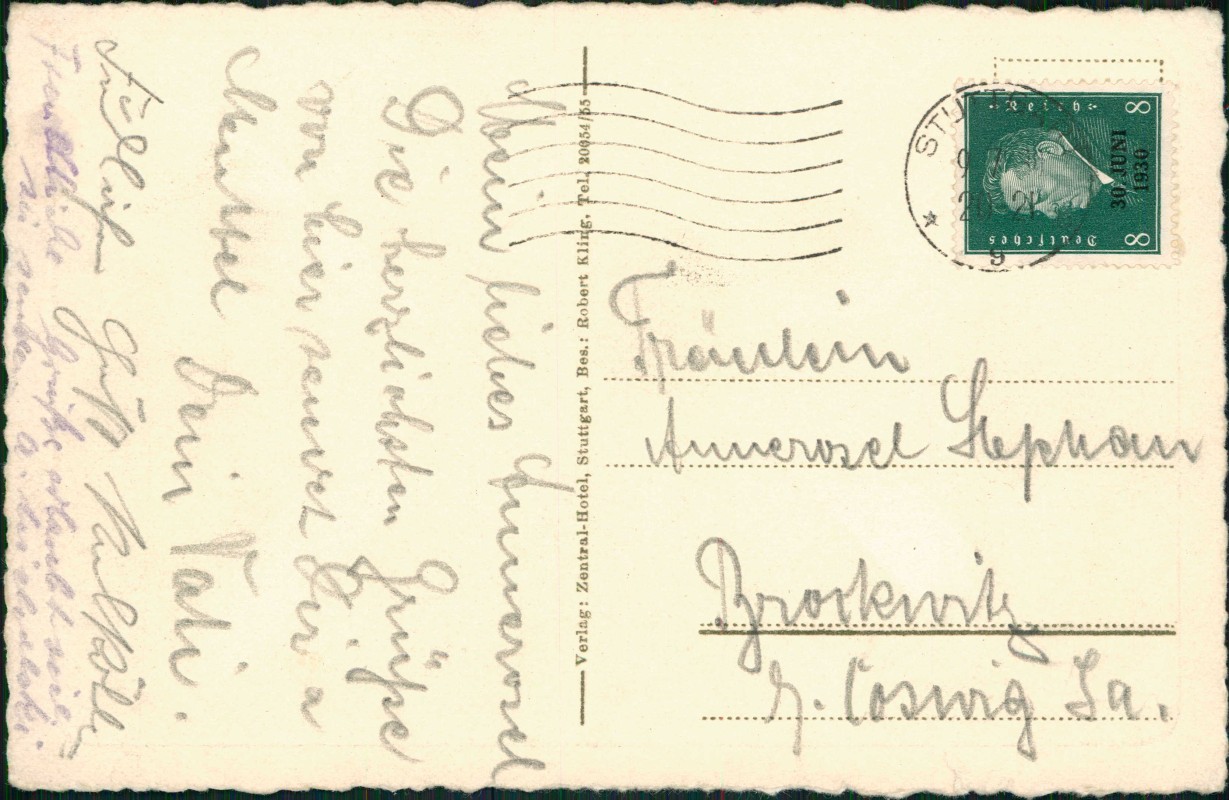 Mein liebes Annerosel
Die herzlichsten Grüße
von hier sendet Dir u
Dein Vati.
Grüße
Freundliche Grüße erlaubt sich
zu senden
Verlag: Zentral-Hotel, Stuttgart, Bes.: Robert Kling, Tel. 20654/55
STUTTG
20 - 21
S
Deutsches Reich
8
8
30. JUNI
1930
Fräulein
Annerosel Stephan
Brockwitz
b. Coswig Sa.